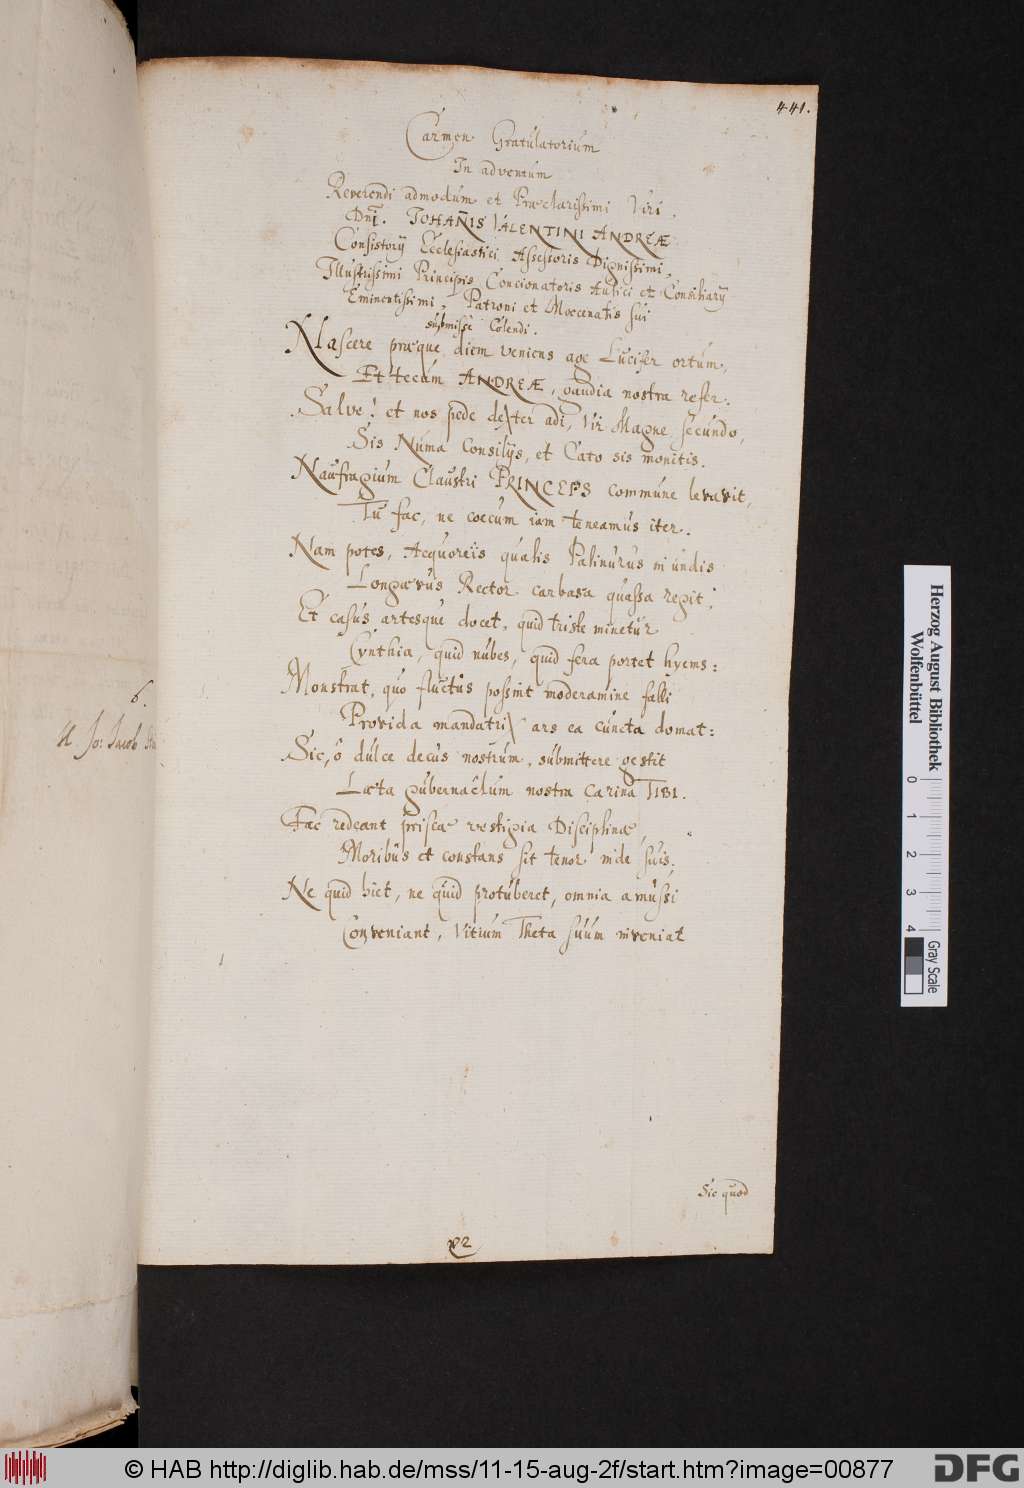 441.
Carmen Gratulatorium
In adventum
Reverendi admodum et Præclarissimi Viri.
Dn̄i. IOHAN̄IS VALENTINI ANDREÆ
Consistorÿ Ecclesiastici Assessoris Dignissimi,
Illustrissimi Principis Concionatoris Aulici et Consiliarÿ
Eminentissimi, Patroni et Mœcenatis sui
submisse Colendi.
Nascere præque diem veniens age Lucifer ortum,
Et tecum ANDREÆ, gaudia nostra refer.
Salve! et nos pede dexter adi, Vir Magne, secundo,
Sis Numa Consilÿs, et Cato sis monitis.
Naufragium Claustri PRINCEPS commune levavit,
Tu fac, ne cœcum iam teneamus iter.
Nam potes, Aequoreis qualis Palinurus in undis
Longævus Rector carbasa quassa regit;
Et casus artesque docet, quid triste minetur
Cynthia, quid nubes, quid fera portet hyems:
Monstrat, quo fluctus possint moderamine falli
Provida mandatrix ars ea cuncta domat:
Sic, ô dulce decus nostrum, submittere gestit
Læta gubernaclum nostra Carina TIBI.
Fac redeant priscæ vestigia Disciplinæ,
Moribus et constans sit tenor inde suis.
Ne quid hiet, ne quid protuberet, omnia amussi
Conveniant, Vitium Theta suum inveniat
Sic quod
6.
Jo: Jacob
Herzog August Bibliothek
Wolfenbüttel
0 1 2 3 4
Gray Scale
© HAB http://diglib.hab.de/mss/11-15-aug-2f/start.htm?image=00877
DFG